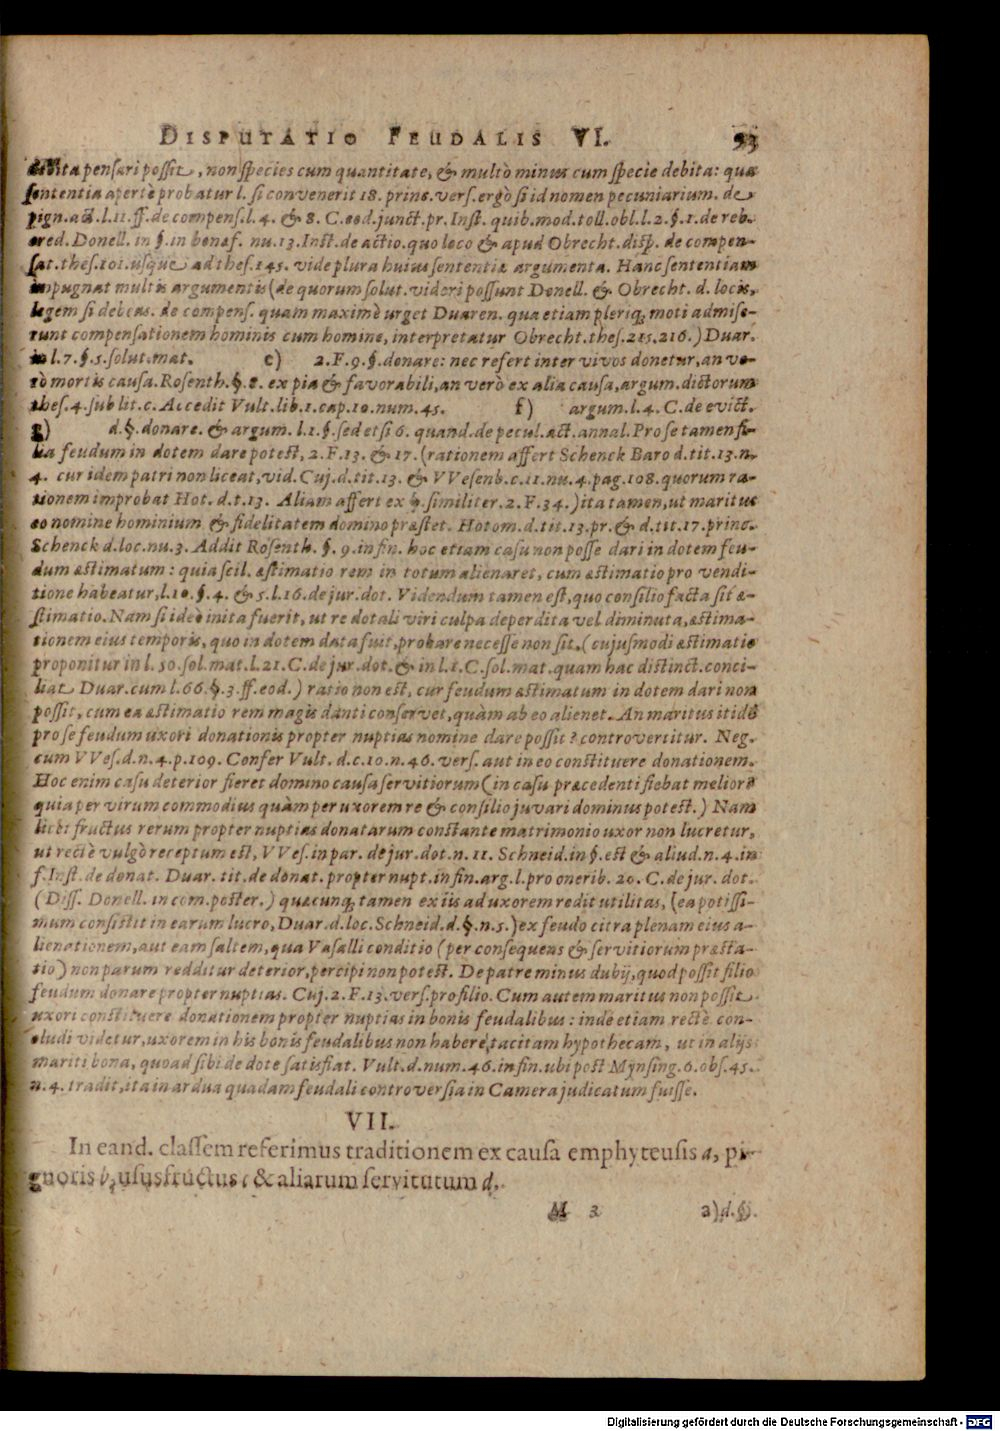 DISPUTATIO FEUDALIS VI. 93
debita pensari possit, non species cum quantitate, & multò minus cum specie debita: quæ
sententia apertè probatur l. si convenerit 18. princ. vers. ergò si id nomen pecuniarium. de
pign. act. l. 11. ff. de compens. l. 4. & 8. C. eod. junct. pr. Inst. quib. mod. toll. obl. l. 2. §. 1. de reb.
cred. Donell. in §. in bonæf. nu. 13. Inst. de actio. quo loco & apud Obrecht. disp. de compen-
sat. thes. 101. usque ad thes. 145. vide plura huius sententiæ argumenta. Hanc sententiam
impugnat multis argumentis (de quorum solut. videri possunt Donell. & Obrecht. d. locis,
legem si debeas. de compens. quam maximè urget Duaren. qua etiam pleriq; moti admise-
runt compensationem hominis cum homine, interpretatur Obrecht. thes. 215. 216.) Duar.
in l. 7. §. 5. solut. mat. e) 2. F. 9. §. donare: nec refert inter vivos donetur, an ve-
rò mortis causa. Rosenth. §. 8. ex pia & favorabili, an verò ex alia causa, argum. dictorum
thes. 4. sub lit. c. Accedit Vult. lib. 1. cap. 10. num. 45. f) argum. l. 4. C. de evict.
g) d. §. donare. & argum. l. 1. §. sed etsi 6. quand. de pecul. act. annal. Pro se tamen fi-
lia feudum in dotem dare potest, 2. F. 13. & 17. (rationem affert Schenck Baro d. tit. 13. n.
4. cur idem patri non liceat, vid. Cuj. d. tit. 13. & VVesenb. c. 11. nu. 4. pag. 108. quorum ra-
tionem improbat Hot. d. t. 13. Aliam affert ex §. similiter. 2. F. 34.) ita tamen, ut maritus
eo nomine hominium & fidelitatem domino præstet. Hotom. d. tit. 13. pr. & d. tit. 17. princ.
Schenck d. loc. nu. 3. Addit Rosenth. §. 9. in fin. hoc etiam casu non posse dari in dotem feu-
dum æstimatum: quia scil. æstimatio rem in totum alienaret, cum æstimatio pro vendi-
tione habeatur, l. 10. §. 4. & 5. l. 16. de jur. dot. Videndum tamen est, quo consilio facta sit æ-
stimatio. Nam si ideò inita fuerit, ut re dotali viri culpa deperdita vel diminuta, æstima-
tionem eius temporis, quo in dotem data fuit, probare necesse non sit, (cujusmodi æstimatio
proponitur in l. 50. sol. mat. l. 21. C. de jur. dot. & in l. 1. C. sol. mat. quam hac distinct. conci-
liat Duar. cum l. 66. §. 3. ff. eod.) ratio non est, cur feudum æstimatum in dotem dari non
possit, cum ea æstimatio rem magis danti conservet, quàm ab eo alienet. An maritus itidē
pro se feudum uxori donationis propter nuptias nomine dare possit? controvertitur. Neg.
cum VVes. d. n. 4. p. 109. Confer Vult. d. c. 10. n. 46. vers. aut in eo constituere donationem.
Hoc enim casu deterior fieret domino causa servitiorum (in casu præcedenti fiebat melior:
quia per virum commodius quàm per uxorem re & consilio juvari dominus potest.) Nam
licet fructus rerum propter nuptias donatarum constante matrimonio uxor non lucretur,
ut rectè vulgò receptum est, VVes. in par. de jur. dot. n. 11. Schneid. in §. est & aliud. n. 4. in
f. Inst. de donat. Duar. tit. de donat. propter nupt. in fin. arg. l. pro onerib. 20. C. de jur. dot.
(Diss. Donell. in com. poster.) quæcunq; tamen ex iis ad uxorem redit utilitas, (ea potissi-
mum consistit in earum lucro, Duar. d. loc. Schneid. d. §. n. 5.) ex feudo citra plenam eius a-
lienationem, aut eam saltem, qua Vasalli conditio (per consequens & servitiorum præsta-
tio) non parum redditur deterior, percipi non potest. De patre minus dubij, quod possit filio
feudum donare propter nuptias. Cuj. 2. F. 13. vers. pro filio. Cum autem maritus non possit
uxori constituere donationem propter nuptias in bonis feudalibus: inde etiam rectè con-
cludi videtur, uxorem in his bonis feudalibus non habere tacitam hypothecam, ut in alijs
mariti bona, quoad sibi de dote satisfiat. Vult. d. num. 46. in fin. ubi post Mynsing. 6. obs. 45.
n. 4. tradit, ita in ardua quadam feudali controversia in Camera judicatum fuisse.
VII.
In eand. classem referimus traditionem ex causa emphyteusis a, pi-
gnoris b, ususfructus c & aliarum servitutum d,
M 3 a) d. §.
Digitalisierung gefördert durch die Deutsche Forschungsgemeinschaft - DFG